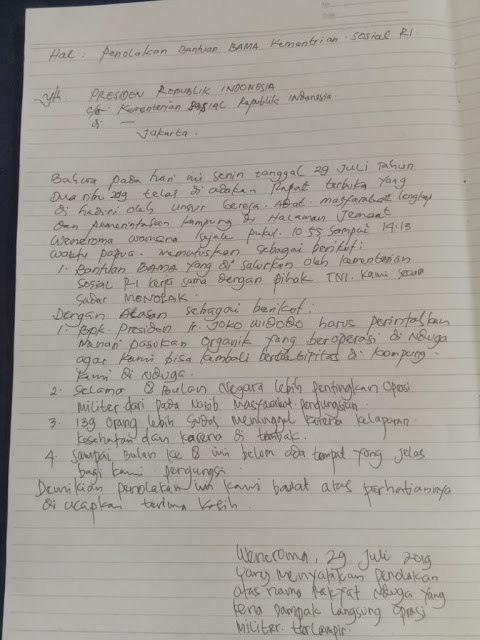 No
Date
Hal : Penolakan Bantuan BAMA Kementrian Sosial RI.
Yth PRESIDEN REPUBLIK INDONESIA
c/q Kementerian Sosial Republik Indonesia.
di —
Jakarta.
Bahwa pada hari ini senin tanggal 29 Juli Tahun
Dua ribu 2019 telas di adakan Rapat terbuka yang
di hadiri oleh unsur Gereja. Adat. masyarakat lengkap
dan pemerintahan kampung di Halaman Jemaat
Weneroma wamena sejak pukul. 10.55 Sampai 14.13
waktu papua. memutuskan sebagai berikut :
1. Bantuan BAMA yang di salurkan oleh kementerian
Sosial RI kerja sama dengan pihak TNI. Kami secara
Sadar MENOLAK.
Dengan Alasan sebagai berikut :
1. Bpk. Presiden Ir. JOKO WIDODO harus perintahkan
Manari pasukan Organik yang beroperasi di Nduga
agar kami bisa kembali beraktipitas di kampung
kami di Nduga.
2. Selama 8 Bulan Negara lebih pentingkan Oprasi
Militer dari pada Nasib Masyarakat pengungsian.
3. 139 orang lebih sudas meninggal karena kelaparan
kesehatan dan karena di tembak.
4. Sampai bulan ke 8 ini belom ada tempat yang jelas
bagi kami pengungsi.
Demikian penolakan ini kami buat atas perhatiannya
di ucapkan terima kasih.
Weneroma, 29 Juli 2019
Yang menyatakan Penolakan
atas nama Rakyat Nduga yang
kena Dampak langsung Oprasi
Militer. terlampir.